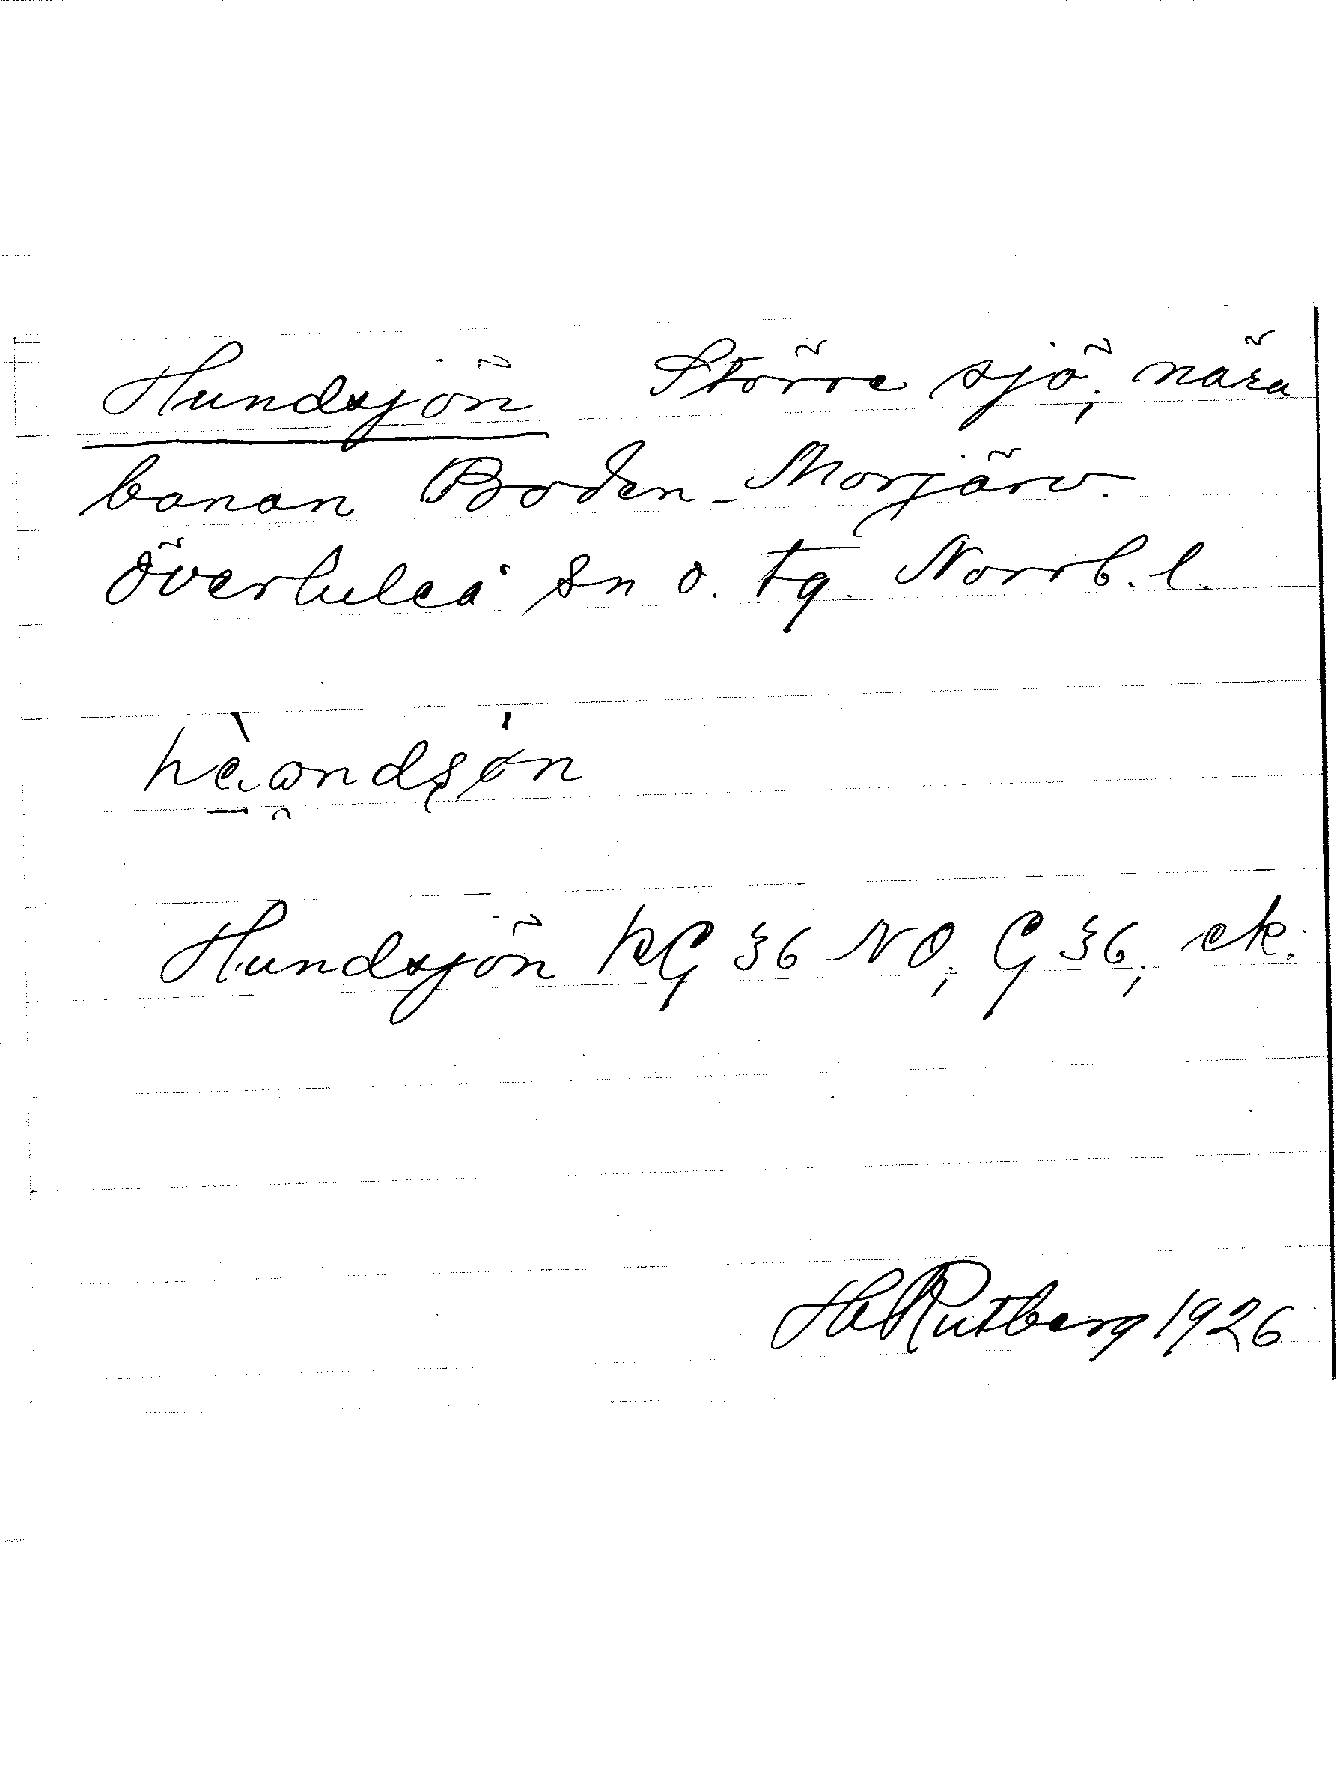 Hundsjön Större sjö, nära
banan Boden-Morjärv.
Överluleå sn o. tg. Norrb. l.
Hundsjön KG 36 NO, G 36, ek.
H Rutberg 1926